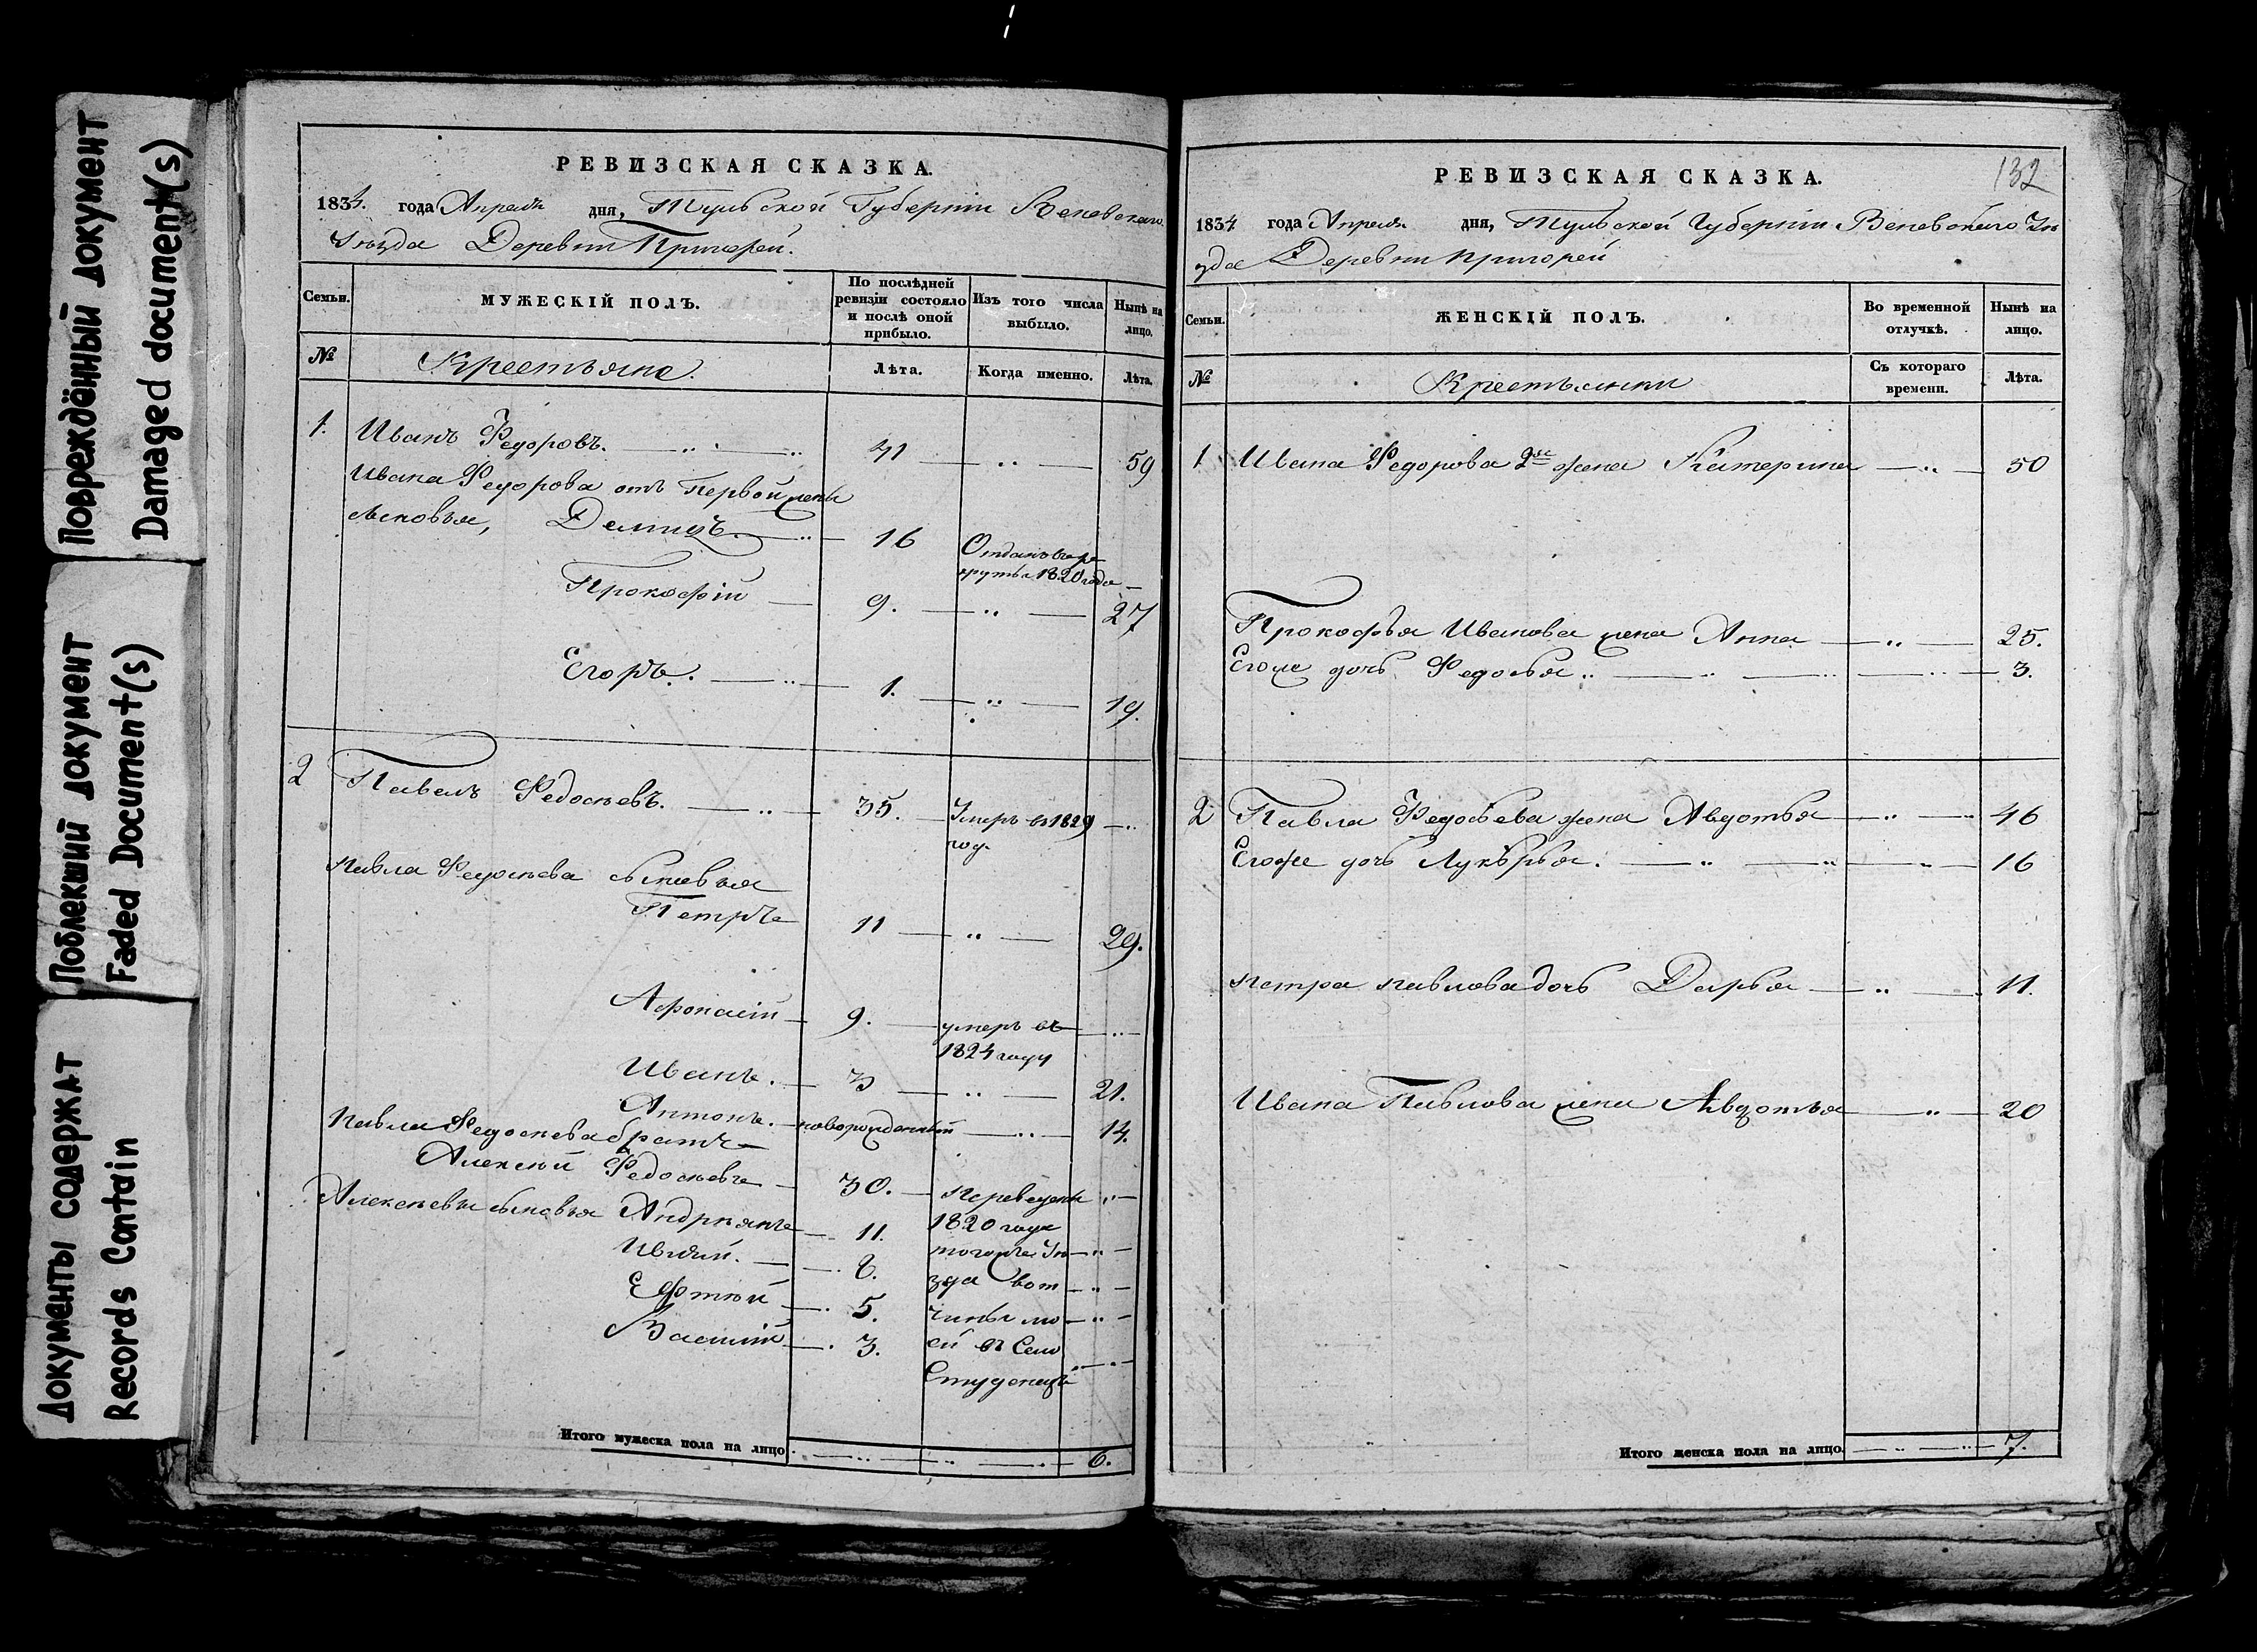 Повреждённый документ
Damaged document(s)
Поблекший документ
Faded Document(s)
Документы содержат
Records Contain
РЕВИЗСКАЯ СКАЗКА.
1834. года Апреля дня, Тульской Губернiи Веневскаго
Уѣзда Деревни Пригорей.
Семьи. МУЖЕСКIЙ ПОЛЪ. По послѣдней ревизiи состояло и послѣ оной прибыло. Изъ того числа выбыло. Нынѣ на лицо.
№ Крестьяне. Лѣта. Когда именно. Лѣта.
1. Иванъ Федоровъ. 41 59
Ивана Федорова отъ первой жены
сыновья, Демидъ. 16 Отданъ въ ре
круты 1820 года
Прокофiй 9. 27
Егоръ. 1. 19.
2 Павелъ Федосѣевъ. 35. Умеръ въ 1829
год.
Павла Федосѣева сыновья
Петръ 11 29.
Афонасiй 9. умеръ въ
1824 году
Иванъ. 3 21.
Антонъ. новорожденный 14.
Павла Федосѣева братъ
Алексѣй Федосѣевъ 30. переведены
Алексѣевы сыновья Андрѣянъ 11. 1820 года
того же Уѣ
8. зда вот
5. чины мо
Василiй 3. ей въ Село
Студенецъ
Итого мужеска пола на лицо. 6.
132
РЕВИЗСКАЯ СКАЗКА.
1834 года Апреля. дня, Тульской Губернiи Веневскаго Уѣ
зда Деревни Пригорей
Семьи. ЖЕНСКIЙ ПОЛЪ. Во временной отлучкѣ. Нынѣ на лицо.
№ Крестьянки Съ котораго времени. Лѣта.
1 Ивана Федорова 2я жена Катерина 50
Прокофья Иванова жена Анна 25.
Егоже дочь Федосья 3.
2 Павла Федосѣева жена Авдотья 46
Егоже дочь Лукѣрья. 16
Петра Павлова дочь Дарья 11.
Ивана Павлова жена Авдотья 20
Итого женска пола на лицо. 7.